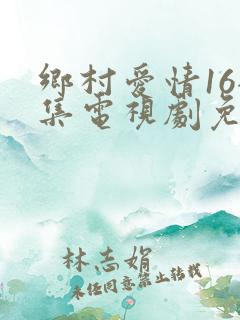 鄉村愛情16
集電視劇免
林志娟
未经同意禁止转载